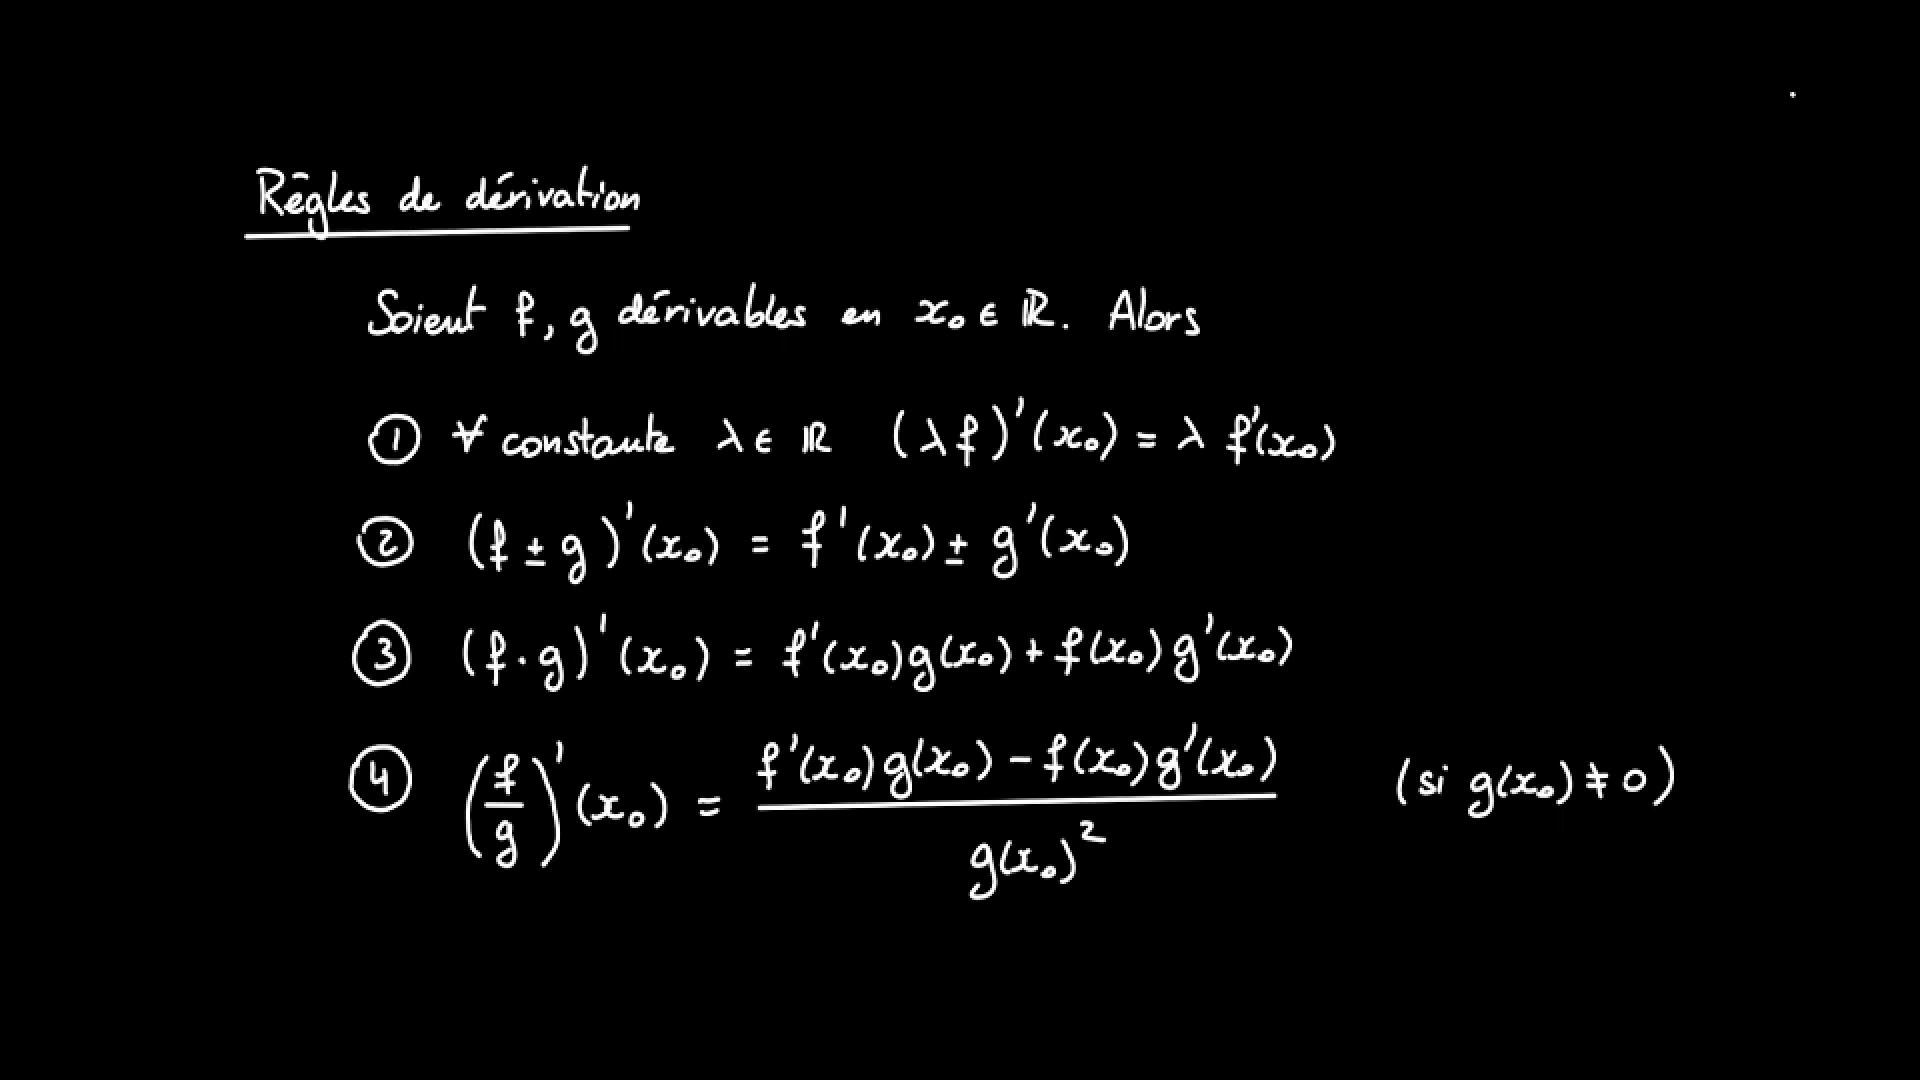 Règles de dérivation
Soient f, g dérivables en x₀ ∈ ℝ. Alors
① ∀ constante λ ∈ ℝ (λf)'(x₀) = λ f'(x₀)
② (f ± g)'(x₀) = f'(x₀) ± g'(x₀)
③ (f · g)'(x₀) = f'(x₀)g(x₀) + f(x₀)g'(x₀)
④ (f/g)'(x₀) = (f'(x₀)g(x₀) − f(x₀)g'(x₀))/g(x₀)² (si g(x₀) ≠ 0)